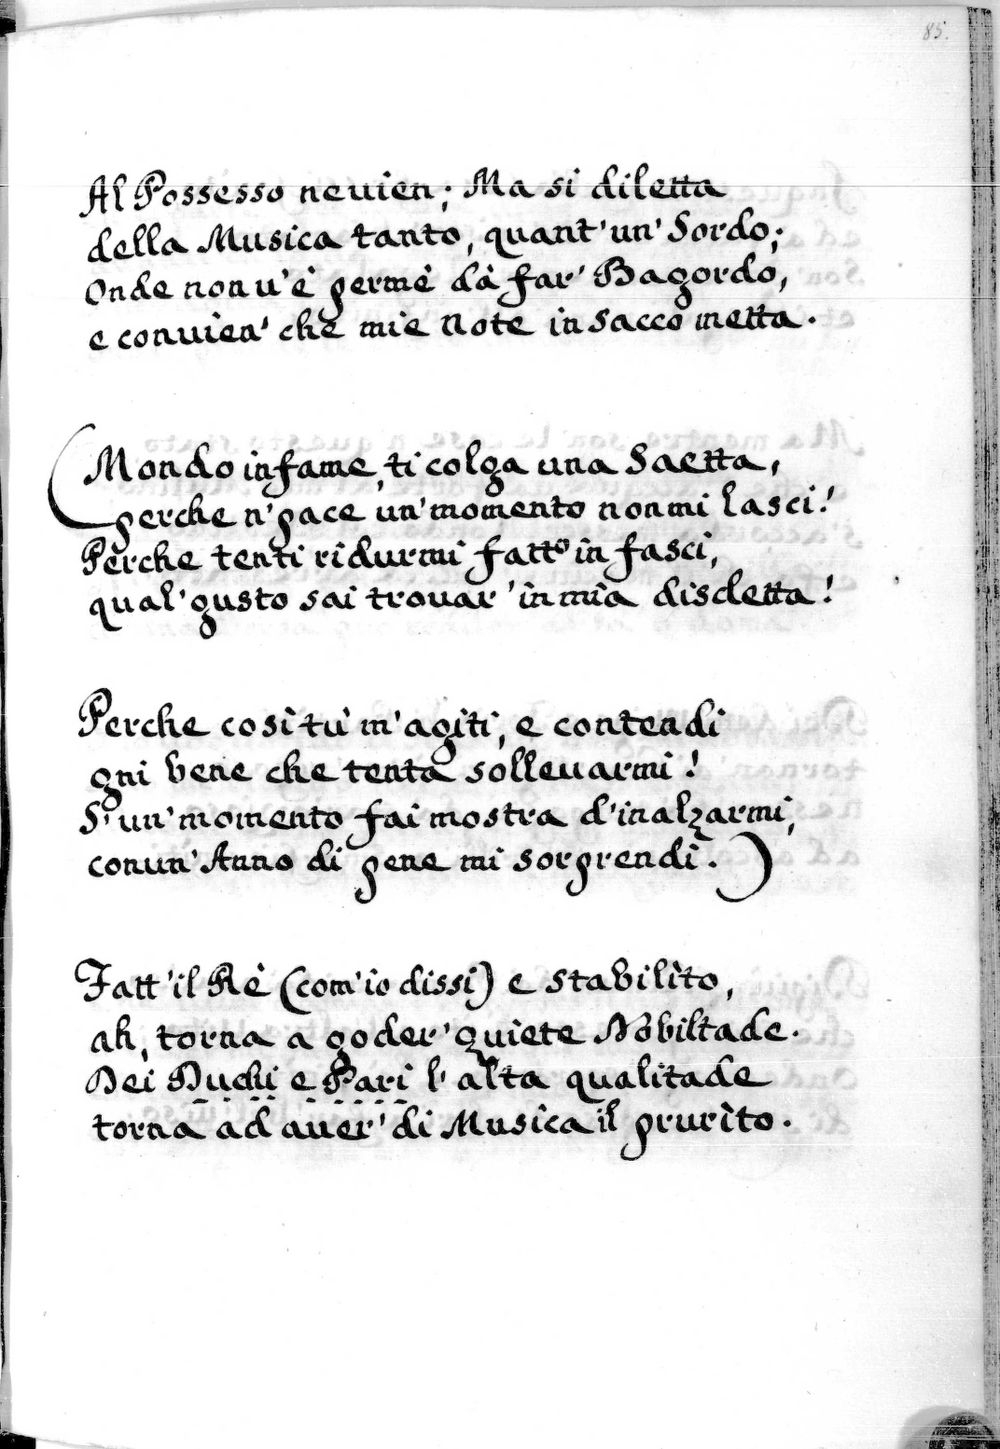 85.
Al Possesso ne uien; Ma si diletta
della Musica tanto, quant' un' Sordo;
Onde non u'è per me dà far' Bagordo,
e conuien' che mie Note in sacco metta.
(Mondo infame, ti colga una Saetta,
perche n' pace un' momento non mi lasci!
Perche tenti ridurmi fatt' in fasci,
qual' gusto sai trouar' in mia disdetta!
Perche così tù m' agiti, e contendi
gni bene che tenta solleuarmi!
S' un' momento fai mostra d'inalzarmi,
con un' Anno di pene mi sorprendi.)
Fatt' il Rè (com' io dissi) e stabilìto,
ah, torna a goder' quiete Nobiltade.
Dei Duchi e Pari l' alta qualitade
torna ad auer' di Musica il prurìto.